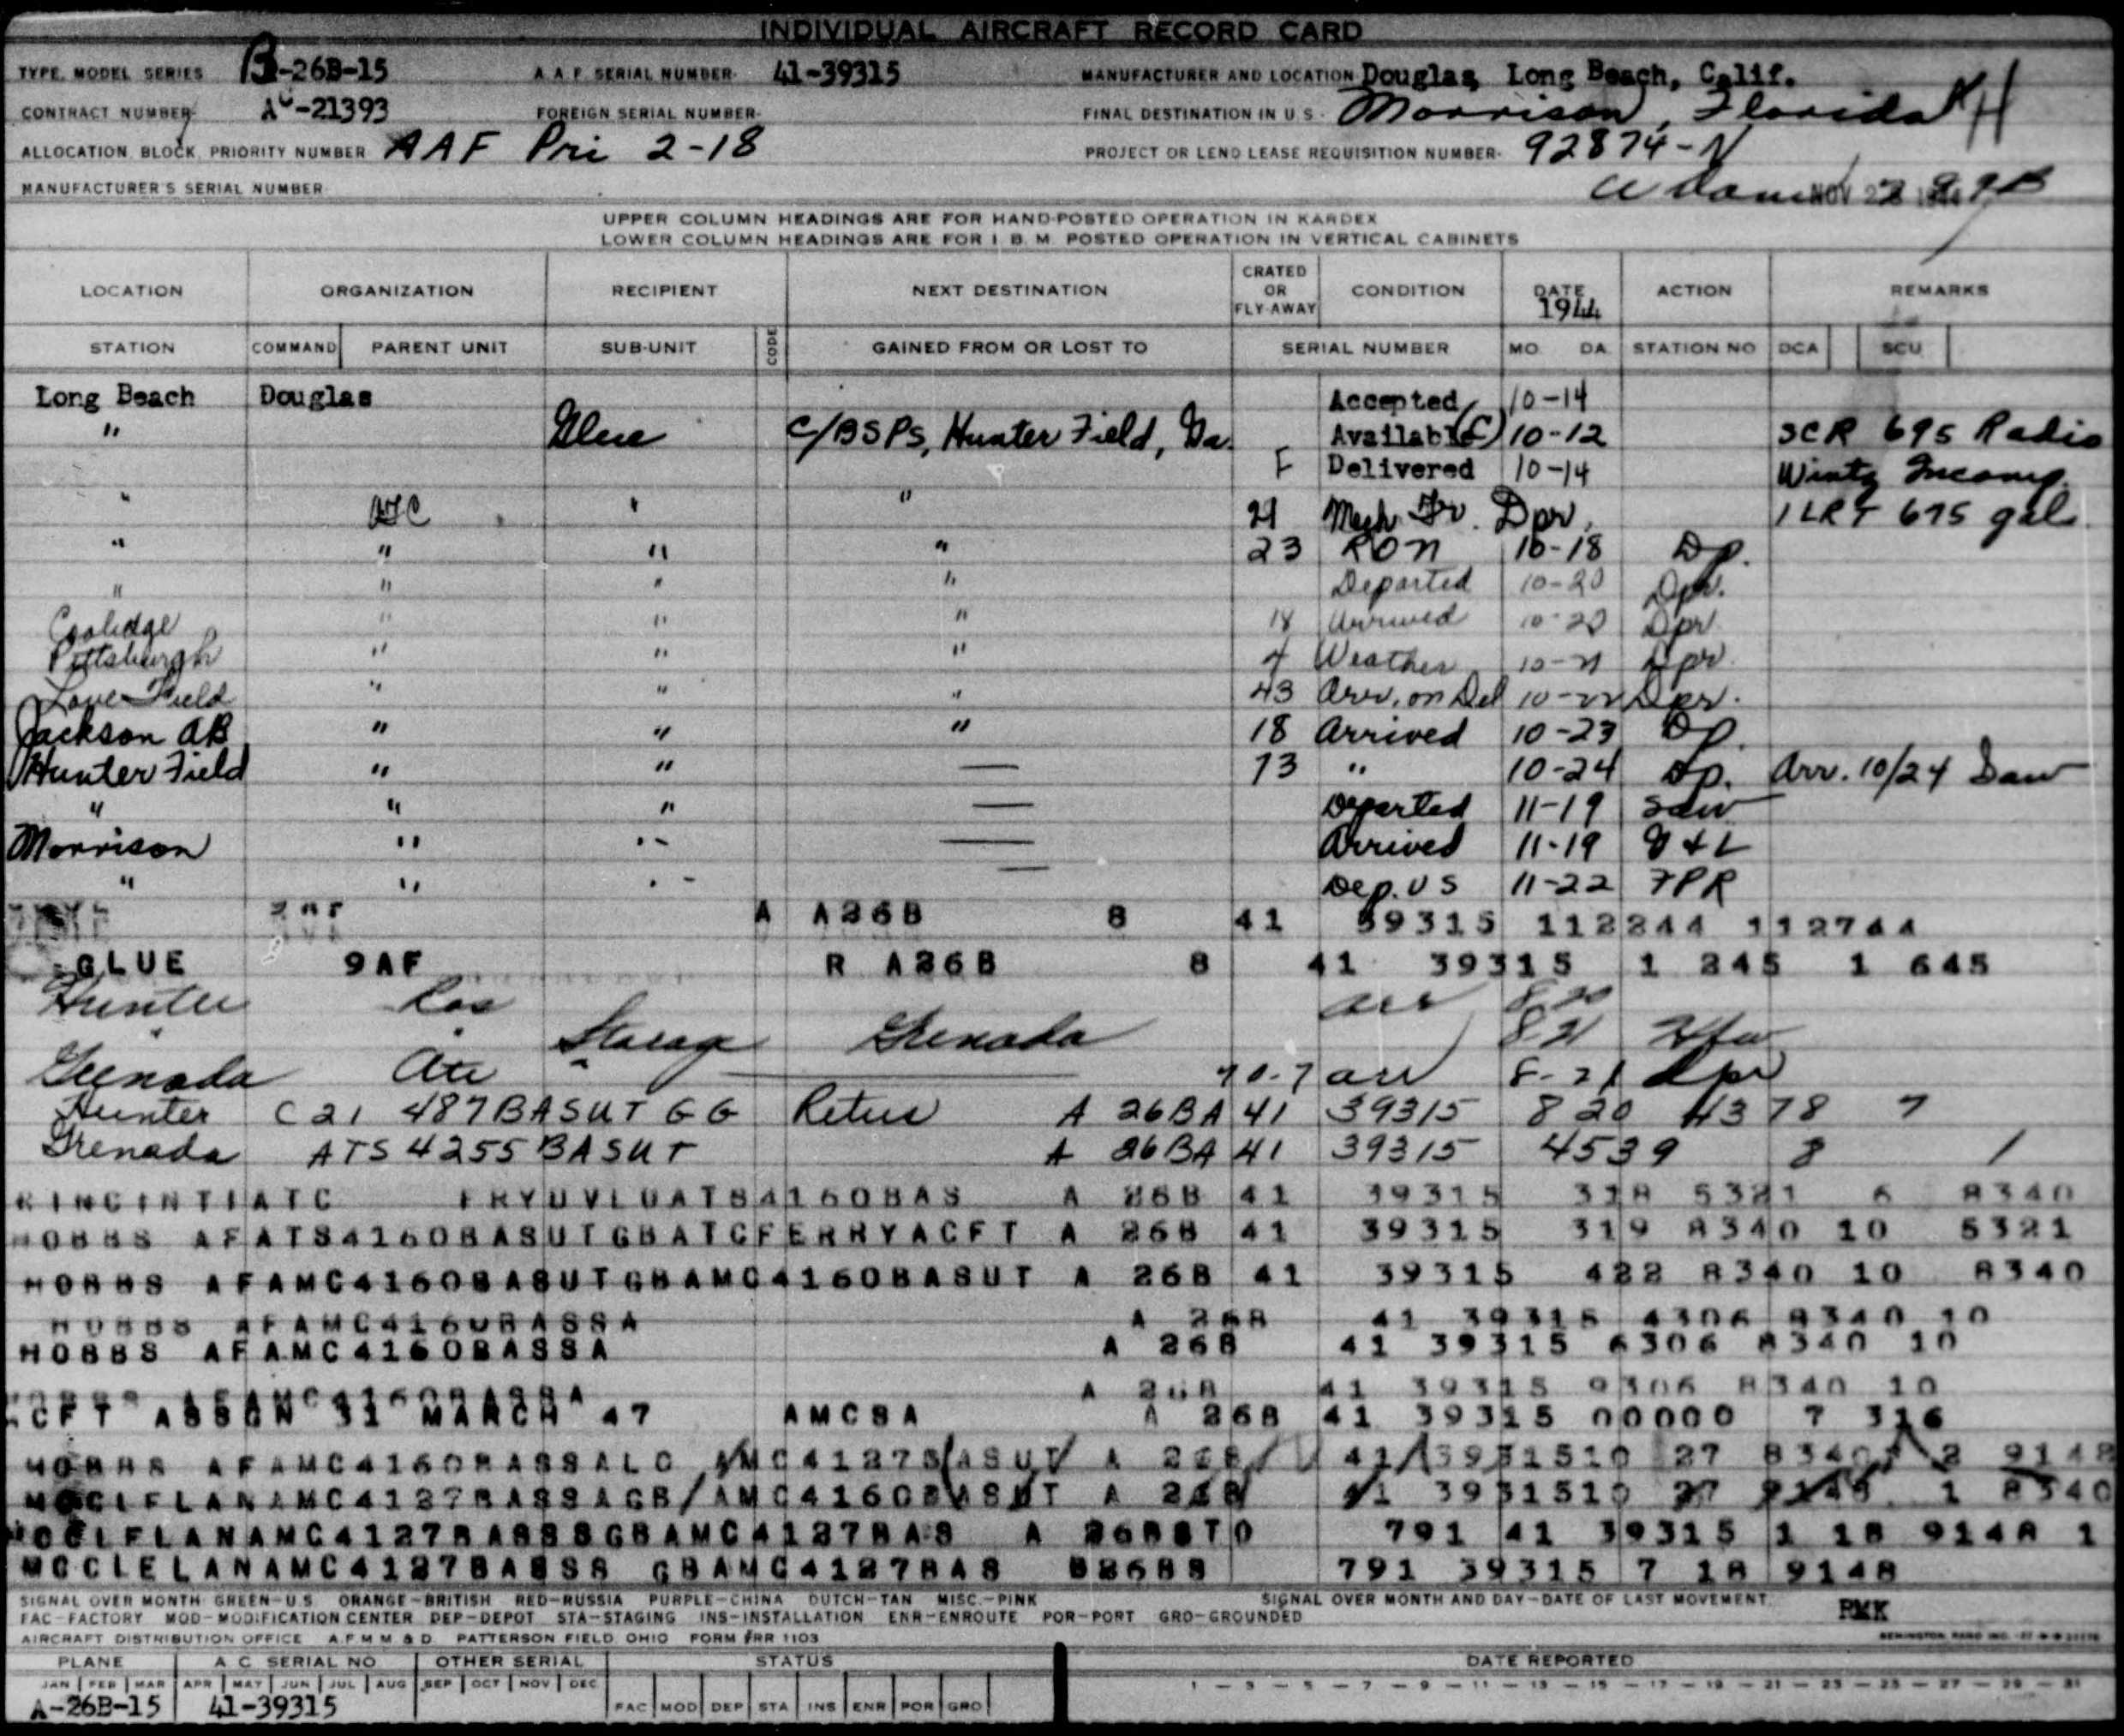 INDIVIDUAL AIRCRAFT RECORD CARD
TYPE, MODEL SERIES B-26B-15 A.A.F. SERIAL NUMBER 41-39315 MANUFACTURER AND LOCATION Douglas, Long Beach, Calif.
CONTRACT NUMBER AC-21393 FOREIGN SERIAL NUMBER FINAL DESTINATION IN U.S. Morrison, Florida H
ALLOCATION, BLOCK, PRIORITY NUMBER AAF Pri 2-18 PROJECT OR LEND LEASE REQUISITION NUMBER 92874-N
MANUFACTURER'S SERIAL NUMBER NOV
UPPER COLUMN HEADINGS ARE FOR HAND-POSTED OPERATION IN KARDEX
LOWER COLUMN HEADINGS ARE FOR I.B.M. POSTED OPERATION IN VERTICAL CABINETS
LOCATION ORGANIZATION RECIPIENT NEXT DESTINATION CRATED OR FLY-AWAY CONDITION DATE 1944 ACTION REMARKS
STATION COMMAND PARENT UNIT SUB-UNIT CODE GAINED FROM OR LOST TO SERIAL NUMBER MO. DA. STATION NO DCA SCU
Long Beach Douglas Accepted 10-14
" Glue C/BSPS, Hunter Field, Ga. Available (C) 10-12 SCR 695 Radio
F Delivered 10-14 Wintz Incomp.
" ATC " " 21 Mech Tr. Dpr. 1 LRT 675 gal.
" " " " 23 RON 10-18 Dp.
" " " " Departed 10-20 Dpr.
Coolidge " " " 18 Arrived 10-20 Dpr
Pittsburgh " " " 4 Weather 10-21 Dpr.
Love Field " " " 43 Arr. on Del 10-22 Dpr.
Jackson AB " " " 18 Arrived 10-23 Dp.
Hunter Field " " — 73 " 10-24 Dp. Arr. 10/24 Saw
" " " — Departed 11-19 Saw
Morrison " " — Arrived 11-19 G&L
" " " — Dep. US 11-22 FPR
A A26B 8 41 39315 112244 112744
GLUE 9AF R A26B 8 41 39315 1 245 1 645
Hunter arr 8-20
Storage Grenada 8-21
Grenada arr 8-21 Dpr
Hunter C21 487BASUT GG Retus A 26BA 41 39315 8 20 4378 7
Grenada ATS 4255BASUT A 26BA 41 39315 4539 8 1
KINCINTIATC FRYDVLUATS4160BAS A 26B 41 39315 318 5321 6 8340
HOBBS AFATS4160BASUTGBATCFERRYACFT A 26B 41 39315 319 8340 10 5321
HOBBS AFAMC4160BASUTGBAMC4160BASUT A 26B 41 39315 422 8340 10 8340
HOBBS AFAMC4160BASSA A 26B 41 39315 4306 8340 10
HOBBS AFAMC4160BASSA A 26B 41 39315 6306 8340 10
HOBBS AFAMC4160BASSA A 26B 41 39315 9306 8340 10
CFT ASSGN 31 MARCH 47 AMCSA A 26B 41 39315 00000 7 316
HOBBS AFAMC4160BASSALC AMC4127BASUT A 26B 41 3931510 27 8340 2 9148
MCCLELANAMC4127BASSAGB AMC4160BASUT A 26B 41 3931510 27 9148 1 8340
MCCLELANAMC4127BASSSGBAMC4127BAS A 26BSTO 791 41 39315 1 18 9148 1
MCCLELANAMC4127BASSS GBAMC4127BAS B26BS 791 39315 7 18 9148
SIGNAL OVER MONTH GREEN-U.S. ORANGE-BRITISH RED-RUSSIA PURPLE-CHINA DUTCH-TAN MISC.-PINK SIGNAL OVER MONTH AND DAY-DATE OF LAST MOVEMENT.
FAC-FACTORY MOD-MODIFICATION CENTER DEP-DEPOT STA-STAGING INS-INSTALLATION ENR-ENROUTE POR-PORT GRD-GROUNDED RMK
AIRCRAFT DISTRIBUTION OFFICE A.F.M.M.&D. PATTERSON FIELD, OHIO FORM #RR 1103
PLANE A C SERIAL NO OTHER SERIAL STATUS DATE REPORTED
JAN FEB MAR APR MAY JUN JUL AUG SEP OCT NOV DEC 1 - 3 - 5 - 7 - 9 - 11 - 13 - 15 - 17 - 19 - 21 - 23 - 25 - 27 - 29 - 31
A-26B-15 41-39315 FAC MOD DEP STA INS ENR POR GRD